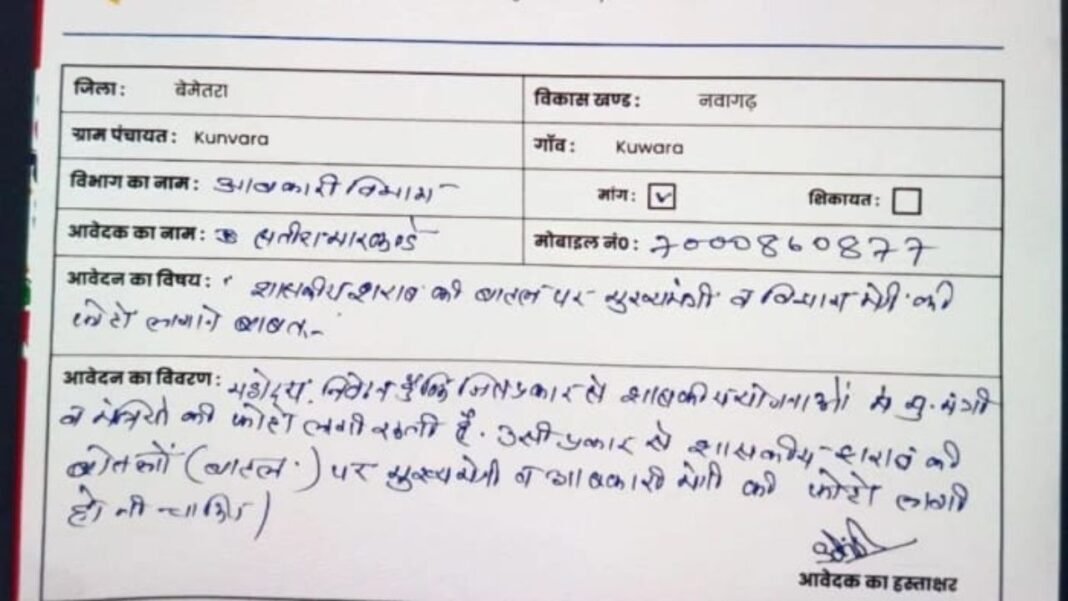 जिला : बेमेतरा विकास खण्ड : नवागढ़
ग्राम पंचायत : Kunvara गाँव : Kuwara
विभाग का नाम : आबकारी विभाग मांग : शिकायत :
आवेदक का नाम : मोबाइल नं० : 7000860877
आवेदन का विषय : शासकीय शराब की बाटल पर मुख्यमंत्री व विभाग मंत्री की
फोटो लगाने बाबत -
आवेदन का विवरण : महोदय, निवेदन है कि जिस प्रकार से शासकीय योजनाओं में मु. मंत्री
व मंत्रियों की फोटो लगी रहती है. उसी प्रकार से शासकीय शराब की
बोतलों (बाटल) पर मुख्यमंत्री व आबकारी मंत्री की फोटो लगी
होनी चाहिए।
आवेदक का हस्ताक्षर